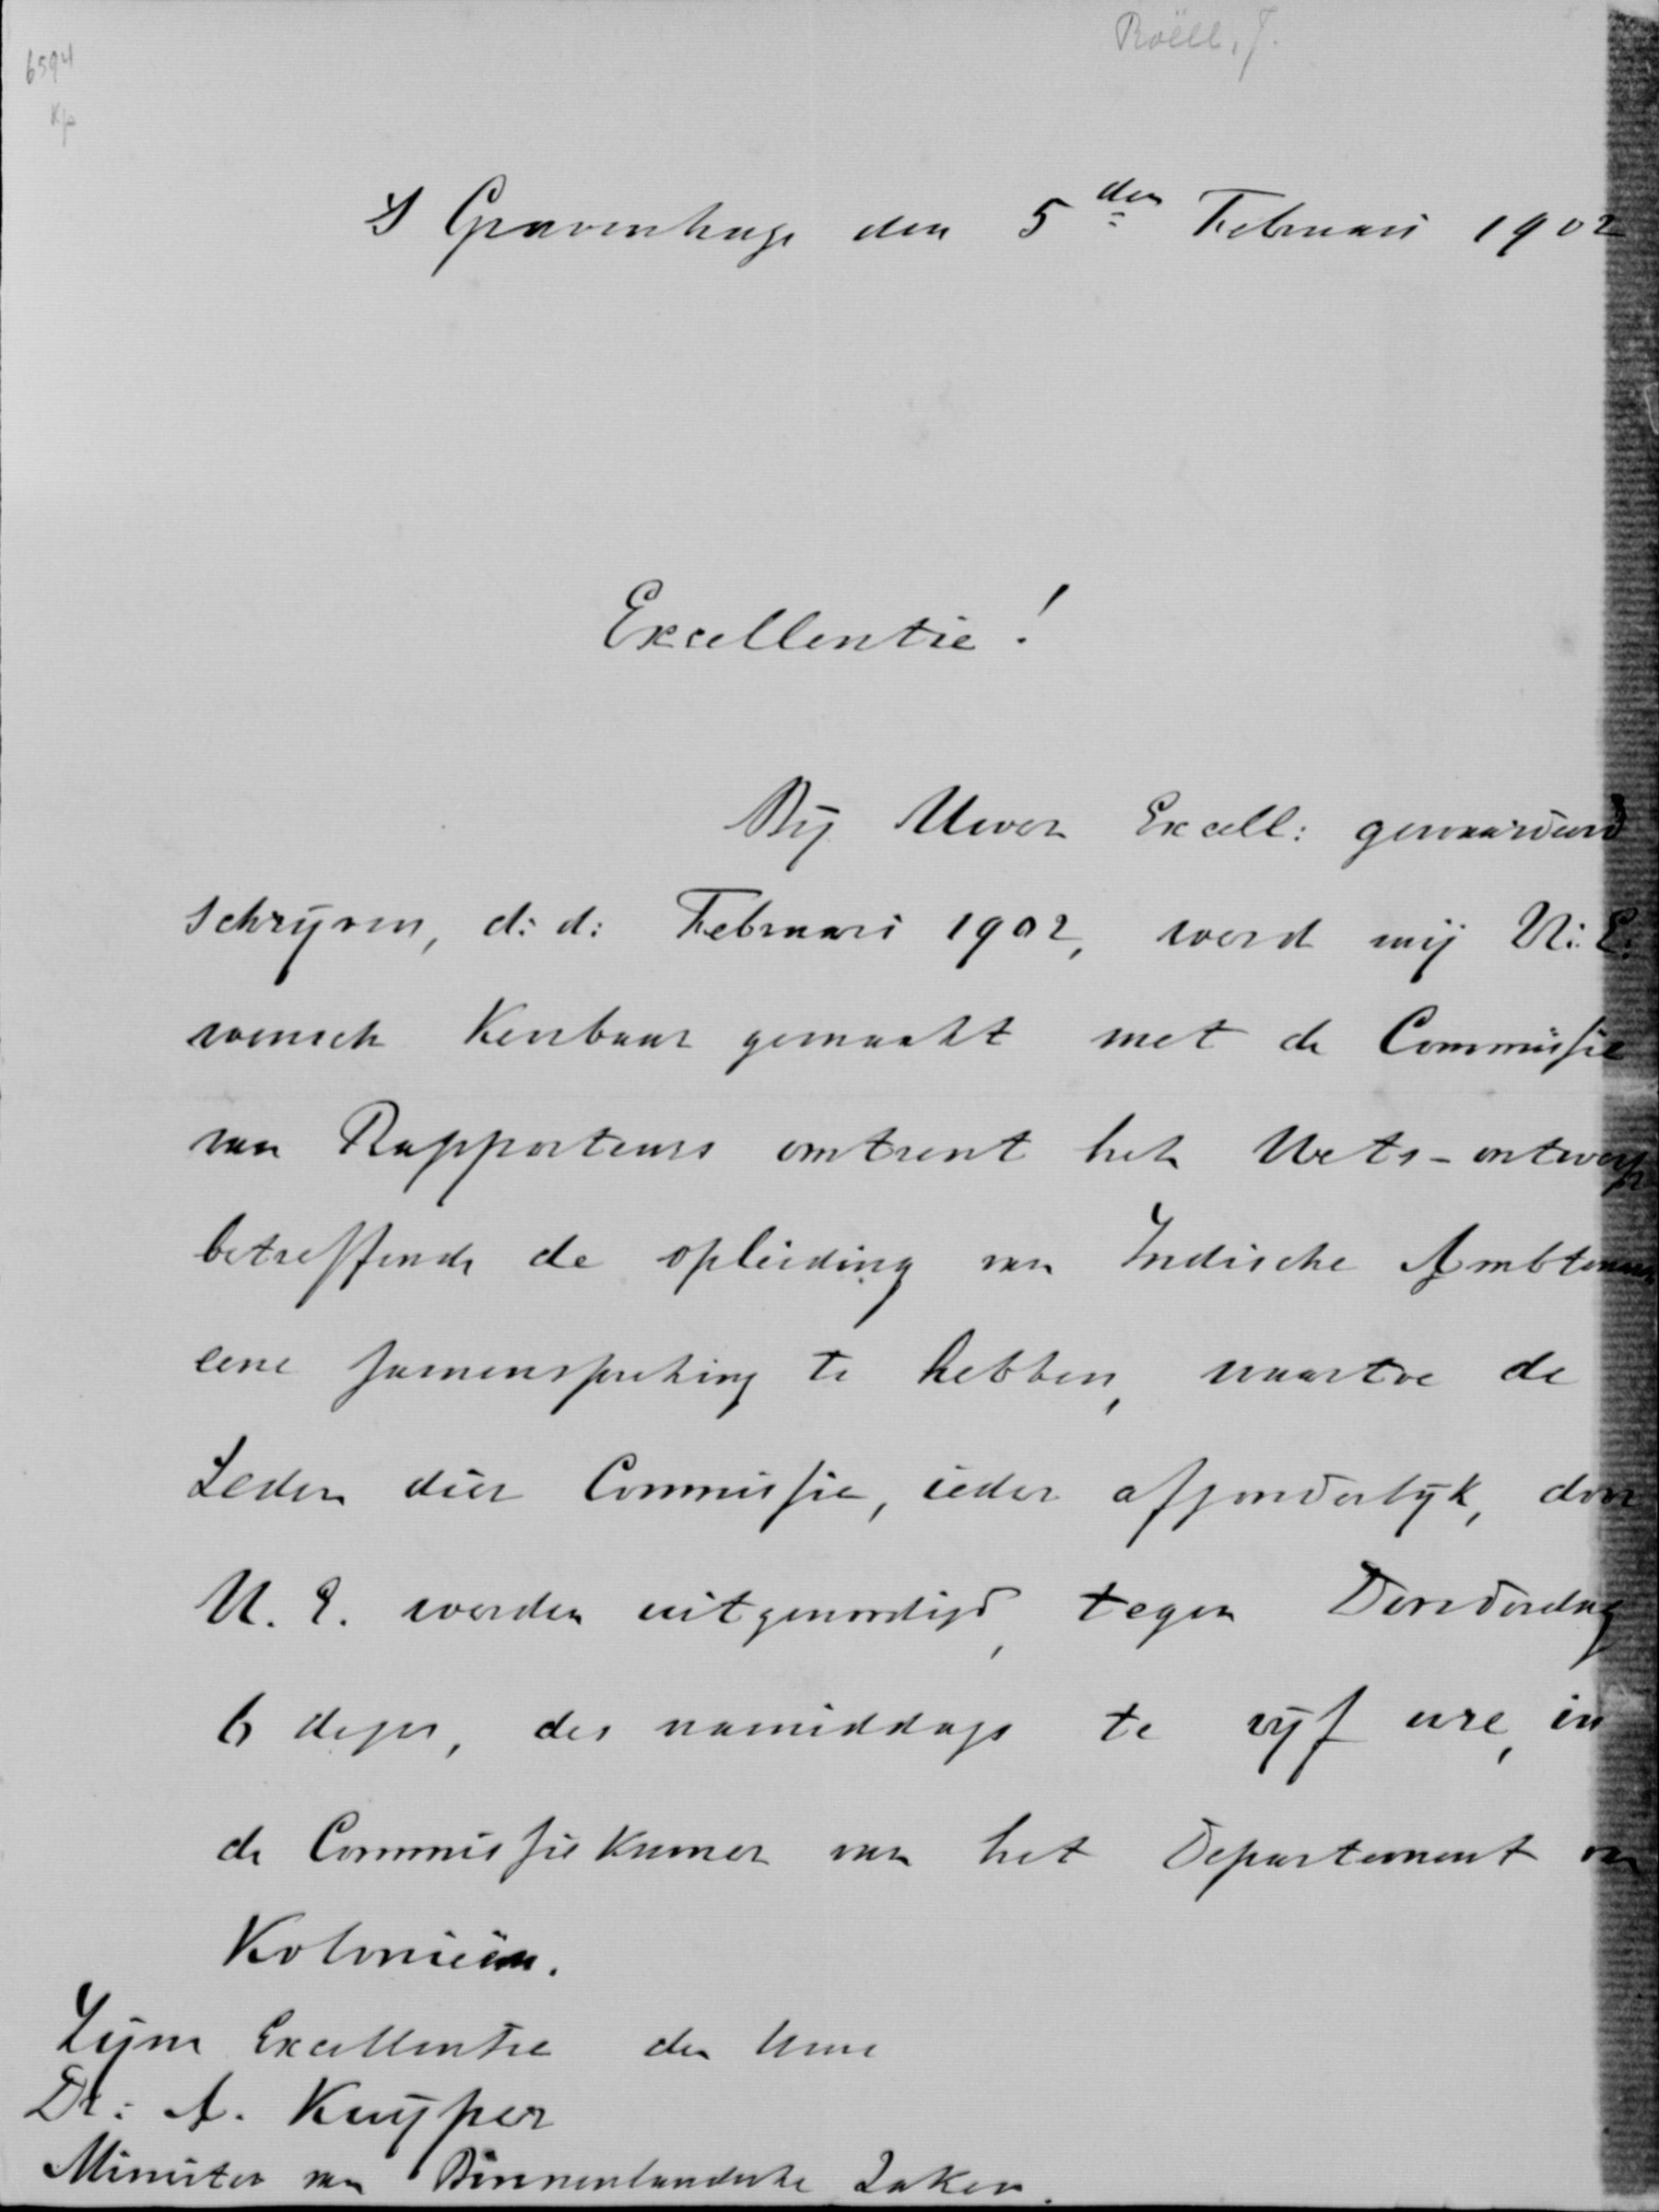 Röell, J.
6594
Kp
'S Gravenhage den 5den Februari 1902
Excellentie!
Bij Uwer Excell: gewaardeerd
schrijven, d: d: Februari 1902, werd mij U: E:
wensch kenbaar gemaakt met de Commissie
van Rapporteurs omtrent het Wets-ontwerp
betreffende de opleiding van Indische Ambtenaren
eene zamenspreking te hebben, waartoe de
Leden dier Commissie, ieder afzonderlijk, door
U. E. worden uitgenoodigd, tegen Donderdag
6 dezer, des namiddags te vijf ure, in
de Commissiekamer van het Departement van
Koloniën.
Zijne Excellentie den Heere
Dr: A. Kuijper
Minister van Binnenlandsche Zaken.